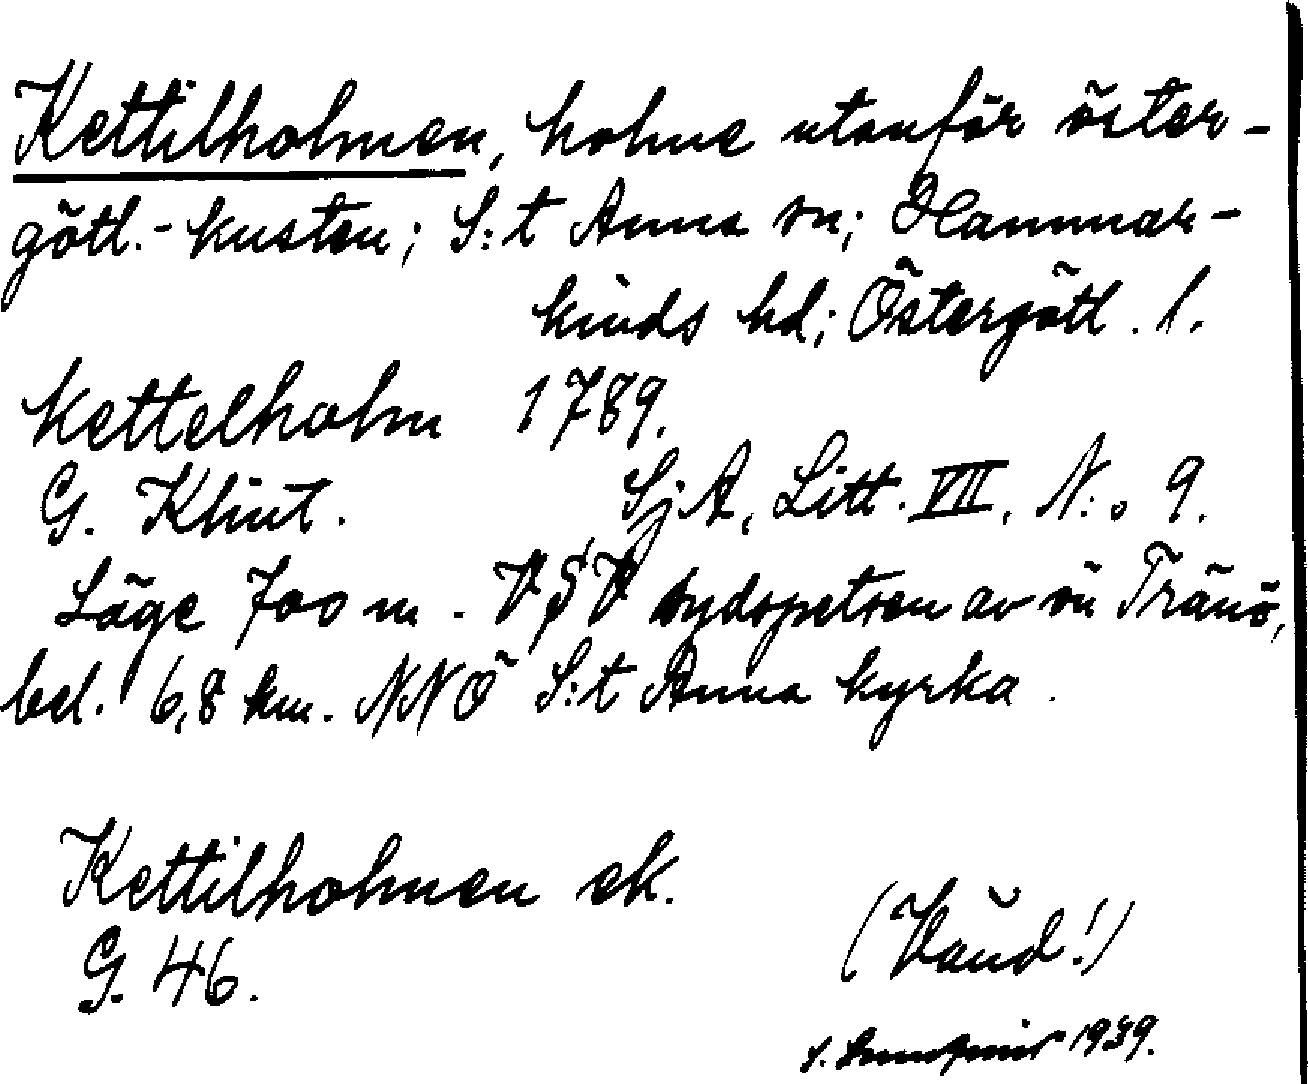 Kettilholmen, holme utanför öster-
götl.-kusten; S:t Anna sn; Hammar-
kinds hd; Östergötl. l.
Kettelholm 1789.
G. Klint. SjA, Litt. VII. N:o 9.
Läge 700 m. VSV sydspetsen av ön Tränö,
bel. 6,8 km. NNÖ S:t Anna kyrka.
Kettilholmen ek.
G. 46.
(Vänd!)
S. 1939.